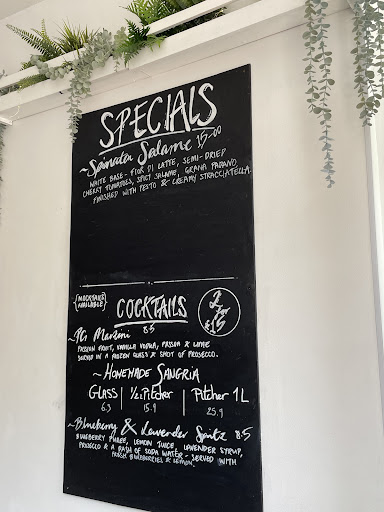 SPECIALS
~Spinata Salame 15.00
WHITE BASE - FIOR DI LATTE, SEMI-DRIED
CHERRY TOMATOES, SPICY SALAME, GRANA PADANO,
FINISHED WITH PESTO & CREAMY STRACCIATELLA.
{MOCKTAILS
AVAILABLE}
COCKTAILS
2
For
£15
8.5
PASSION FRUIT, VANILLA VODKA, PASSOA & LIME
SERVED IN A FROZEN GLASS & SHOT OF PROSECCO.
~ HOMEMADE SANGRIA
GLASS | 1/2 Pitcher | Pitcher 1L
6.3 15.9 25.9
~Blueberry & Lavender Spritz 8.5
BLUEBERRY PUREE, LEMON JUICE, LAVENDER SYRUP,
PROSECCO & A DASH OF SODA WATER - SERVED WITH
FRESH BLUEBERRIES & LEMON.